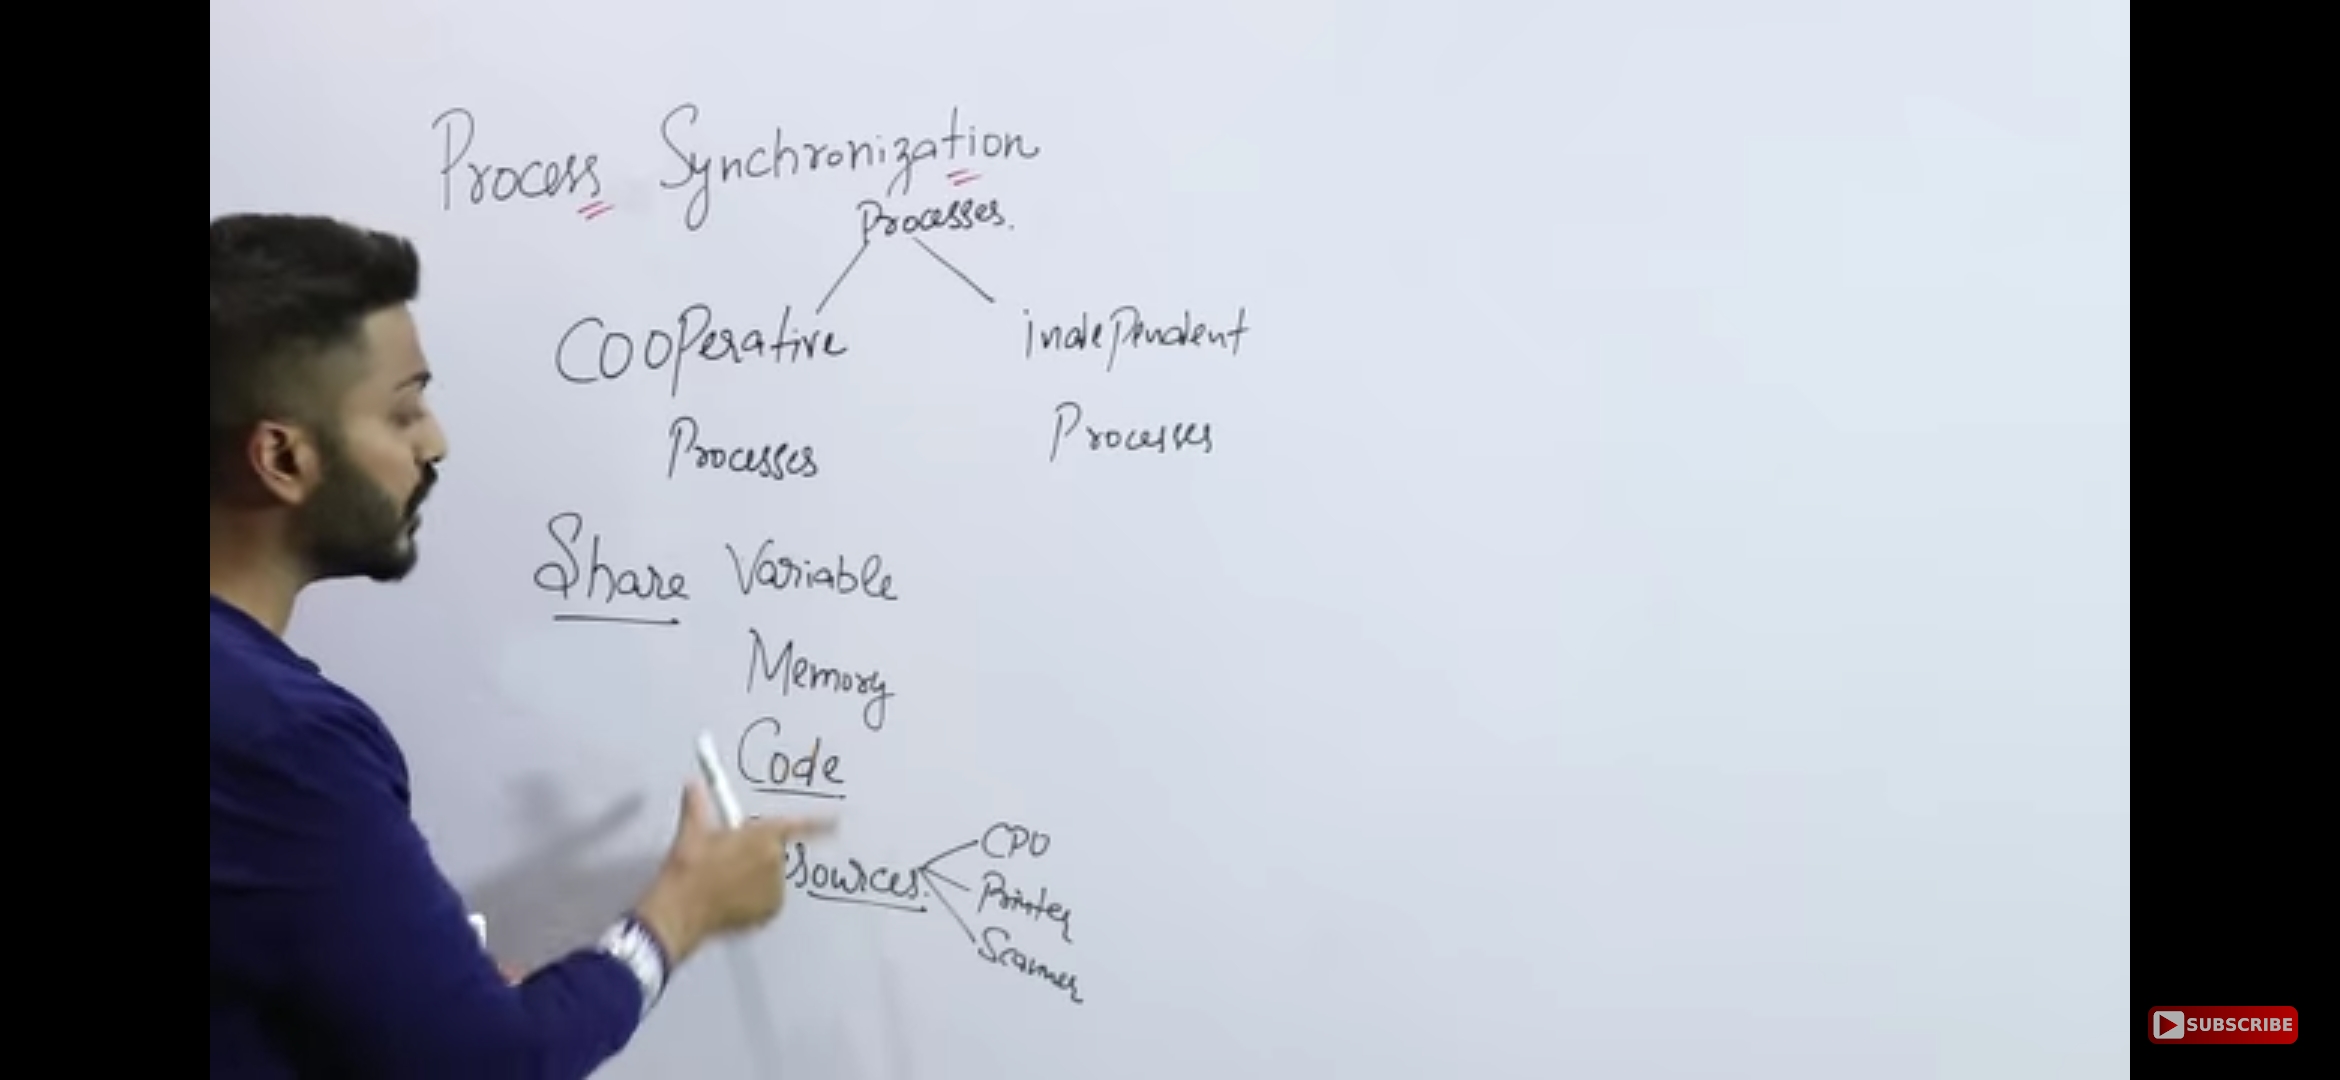 Process Synchronization
Processes.
Cooperative
Processes
independent
Processes
Share Variable
Memory
Code
CPU
Printer
Scanner
SUBSCRIBE